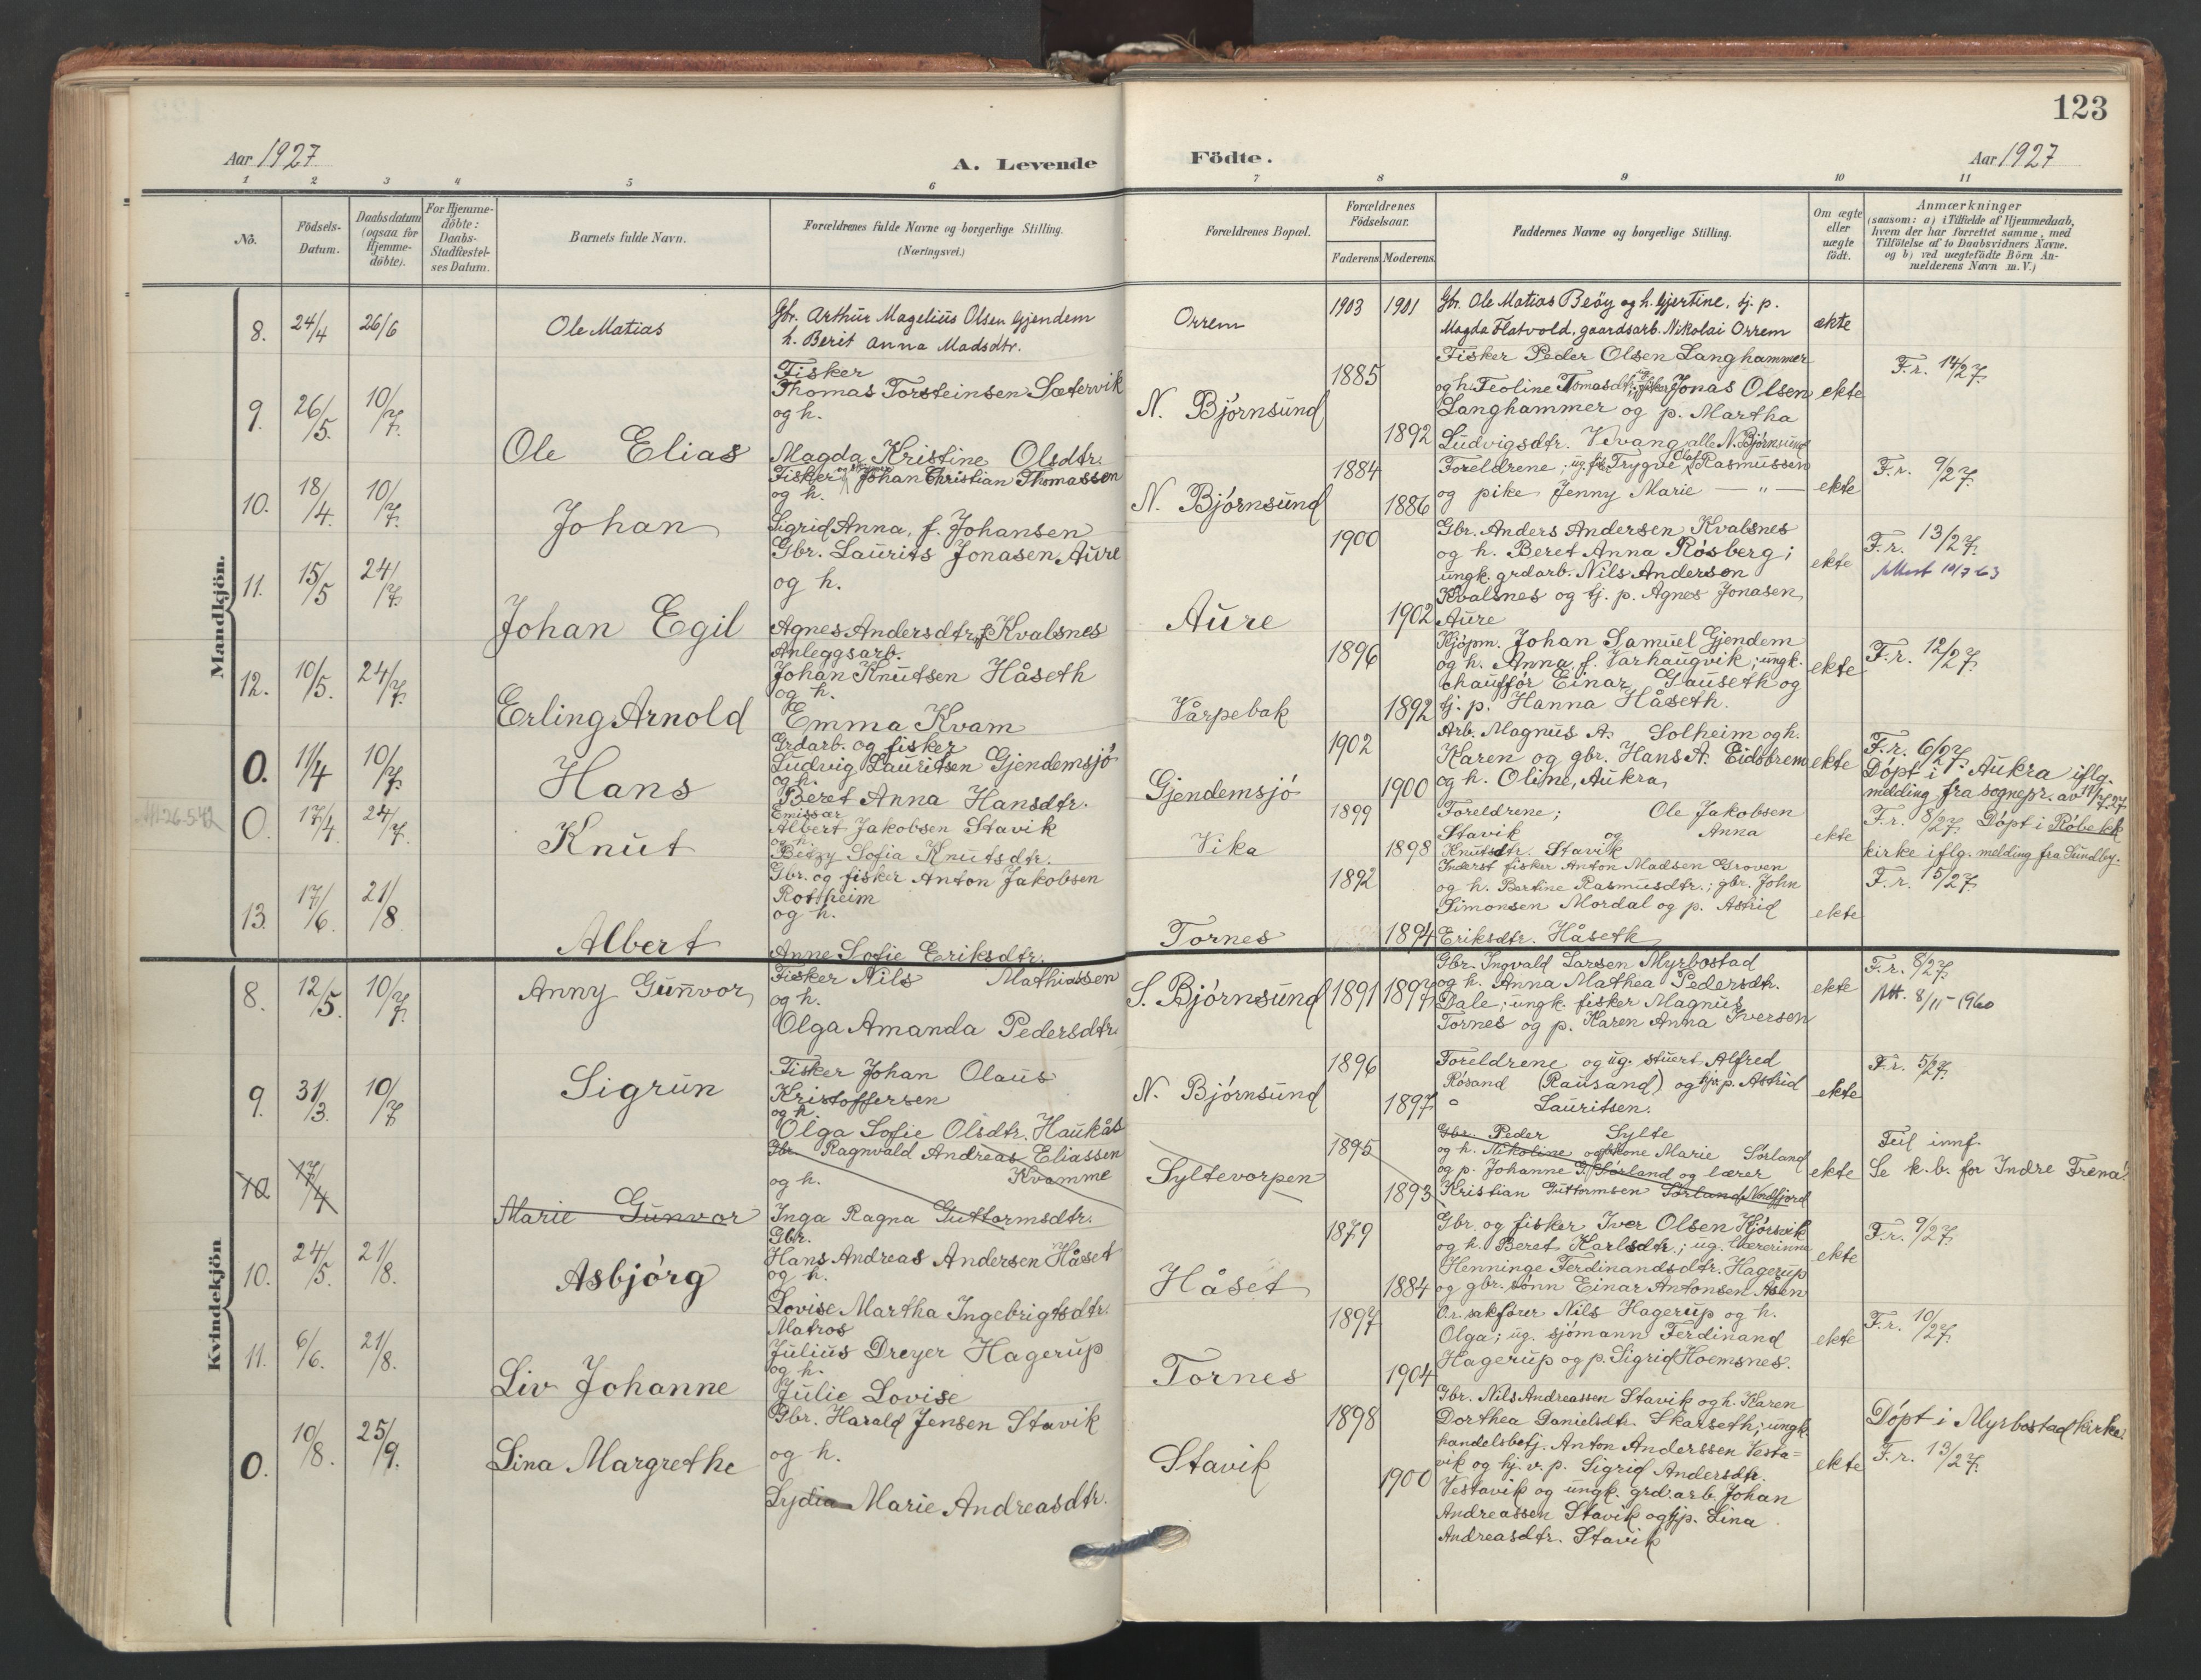 123
Aar 1927
A. Levende
Födte.
Aar 1927
1 2 3 4 5 6
7 8 9 10 11
No.
Födsels-
Datum.
Daabsdatum
(ogsaa for
Hjemme-
döbte).
For Hjemme-
döbte:
Daabs-
Stadfæstel-
ses Datum.
Barnets fulde Navn.
Forældrenes fulde Navne og borgerlige Stilling.
(Næringsvei.)
Forældrenes Bopæl.
Forældrenes
Födselsaar.
Faderens
Moderens
Faddernes Navne og borgerlige Stilling.
Om ægte
eller
uægte
födt.
Anmærkninger
(saasom: a) i Tilfælde af Hjemmedaab,
hvem der har forrettet samme, med
Tilföielse af to Daabsvidners Navne.
og b) ved uægtefödte Börn An-
melderens Navn m. V.)
Mandkjön.
8. 24/4 26/6
Ole Matias
Gbr. Arthur Magelius Olsen Gjendem
h. Berit Anna Madsdtr.
Orrem
1903 1901
Gbr. Ole Matias Beöy og h. Gjertine, tj. p.
Magda Flatvold, gaardsarb. Nikolai Orrem
ekte
9. 26/5. 10/7.
Ole Elias
Fisker
Thomas Torsteinsen Sætervik
og h.
Magda Kristine Olsdtr.
N. Bjørnsund
1885
1892
Fisker Peder Olsen Langhammer
og h. Teoline Tomasdtr.; og fisker Jonas Olsen
Langhammer og p. Martha
Ludvigsdtr. Vevang, alle N. Bjørnsund
ekte
F. r. 14/27.
10. 18/4. 10/7.
Johan
Fisker Johan Christian Thomassen
og h.
Sigrid Anna, f. Johansen
N. Bjørnsund
1884
1886
Foreldrene; ug. fisk. Trygve Olaf Rasmussen
og pike Jenny Marie — " —
ekte
F. r. 9/27.
11. 15/5 24/7.
Johan Egil
Gbr. Laurits Jonasen Aure
og h.
Agnes Andersdtr, f. Kvalsnes
Aure
1900
1902
Gbr. Anders Andersen Kvalsnes
og h. Beret Anna Røsberg;
ungk. grdarb. Nils Anderson
Kvalsnes og tj. p. Agnes Jonasen,
Aure
ekte
F. r. 13/27.
Attest 10/7-63
12. 10/5. 24/7.
Erling Arnold
Anleggsarb.
Johan Knutsen Håseth
og h.
Emma Kvam
Vårpebak
1896
1892
Kjøpm. Johan Samuel Gjendem
og h. Anna, f. Varhaugvik; ungk.
chauffør Einar Gauseth og
tj. p. Hanna Håseth.
ekte
F. r. 12/27.
0. 11/4 10/7.
Hans
Grdarb. og fisker
Ludvig Lauritsen Gjendemsjø
og h.
Beret Anna Hansdtr.
Gjendemsjø
1902
1900
Arb. Magnus A. Solheim og h.
Karen og gbr. Hans A. Eidsbrem
og h. Oline, Aukra
ekte
F. r. 6/27.
Døpt i Aukra iflg.
melding fra sognepr. av 11/7.27
0. 17/4. 24/7.
Knut
Emissær
Albert Jakobsen Stavik
og h.
Betzy Sofia Knutsdtr.
Vika
1899
1898
Foreldrene; Ole Jakobsen
Stavik og Anna
Knutsdtr. Stavik
ekte
F. r. 8/27. Døpt i Røbekk
kirke iflg. melding fra Sundby.
13. 17/6. 21/8
Albert
Gbr. og fisker Anton Jakobsen
Rottheim
og h.
Anne Sofie Eriksdtr.
Tornes
1892
1894
Inderst fisker Anton Madsen Groven
og h. Bertine Rasmusdtr.; gbr. John
Simonsen Mordal og p. Astrid
Eriksdtr. Håseth
ekte
F. r. 15/27
Kvindekjön
8. 12/5. 10/7.
Anny Gunvor
Fisker Nils Mathiassen
og h.
Olga Amanda Pedersdtr.
S. Bjørnsund
1891 1897
Gbr. Ingvald Larsen Myrbostad
og h. Anna Mathea Pedersdtr.
Dale; ungk. fisker Magnus
Tornes og p. Karen Anna Iversen
ekte
F. r. 8/27.
Att. 8/11-1960
9. 31/3. 10/7
Sigrun
Fisker Johan Olaus
Kristoffersen
og h.
Olga Sofie Olsdtr. Haukås
N. Bjørnsund
1896
1897
Foreldrene og ug. stuert Alfred
Røsand (Rausand) og tj. p. Astrid
Lauritsen.
ekte
F. r. 5/27.
10 17/4
Marie Gunvor
Gbr. Ragnvald Andreas Eliassen
Kvamme
og h.
Inga Ragna Guttormsdtr.
Syltevorpen
1895
1893
Gbr. Peder Sylte
og h. Nikoline og kone Marie Sørland
og p. Johanne G. Sørland og lærer
Kristian Guttormsen Sørland, Nordfjord
ekte
Feil innf.
Se k.b. for Indre Frena.
10. 24/5. 21/8.
Asbjørg
Gbr.
Hans Andreas Andersen Håset
og h.
Lovise Martha Ingebrigtsdtr.
Håset
1879
1884
Gbr. og fisker Iver Olsen Hjørsvik
og h. Beret Karlsdtr.; ug. lærerinne
Henninge Ferdinandsdtr. Hagerup
og gbr. sønn Einar Antonsen Åsen
ekte
F. r. 9/27.
11. 6/6. 21/8.
Liv Johanne
Matros
Julius Dreyer Hagerup
og h.
Julie Lovise
Tornes
1897
1904
O.r. sakfører Nils Hagerup og h.
Olga; ug. sjømann Ferdinand
Hagerup og p. Sigrid Hoemsnes.
ekte
F. r. 10/27.
0. 10/8. 25/9.
Lina Margrethe
Gbr. Harald Jensen Stavik
og h.
Lydia Marie Andreasdtr.
Stavik
1898
1900
Gbr. Nils Andreassen Stavik og h. Karen
Dorthea Danielsdtr. Skarseth; ungk.
handelsbetj. Anton Anderssen Vesta=
vik og hj. v. p. Sigrid Andersdtr.
Vestavik og ungk. grd.arb. Johan
Andreassen Stavik og tj.p. Lina
Andreasdtr. Stavik
ekte
Døpt i Myrbostad kirke.
F. r. 13/27.